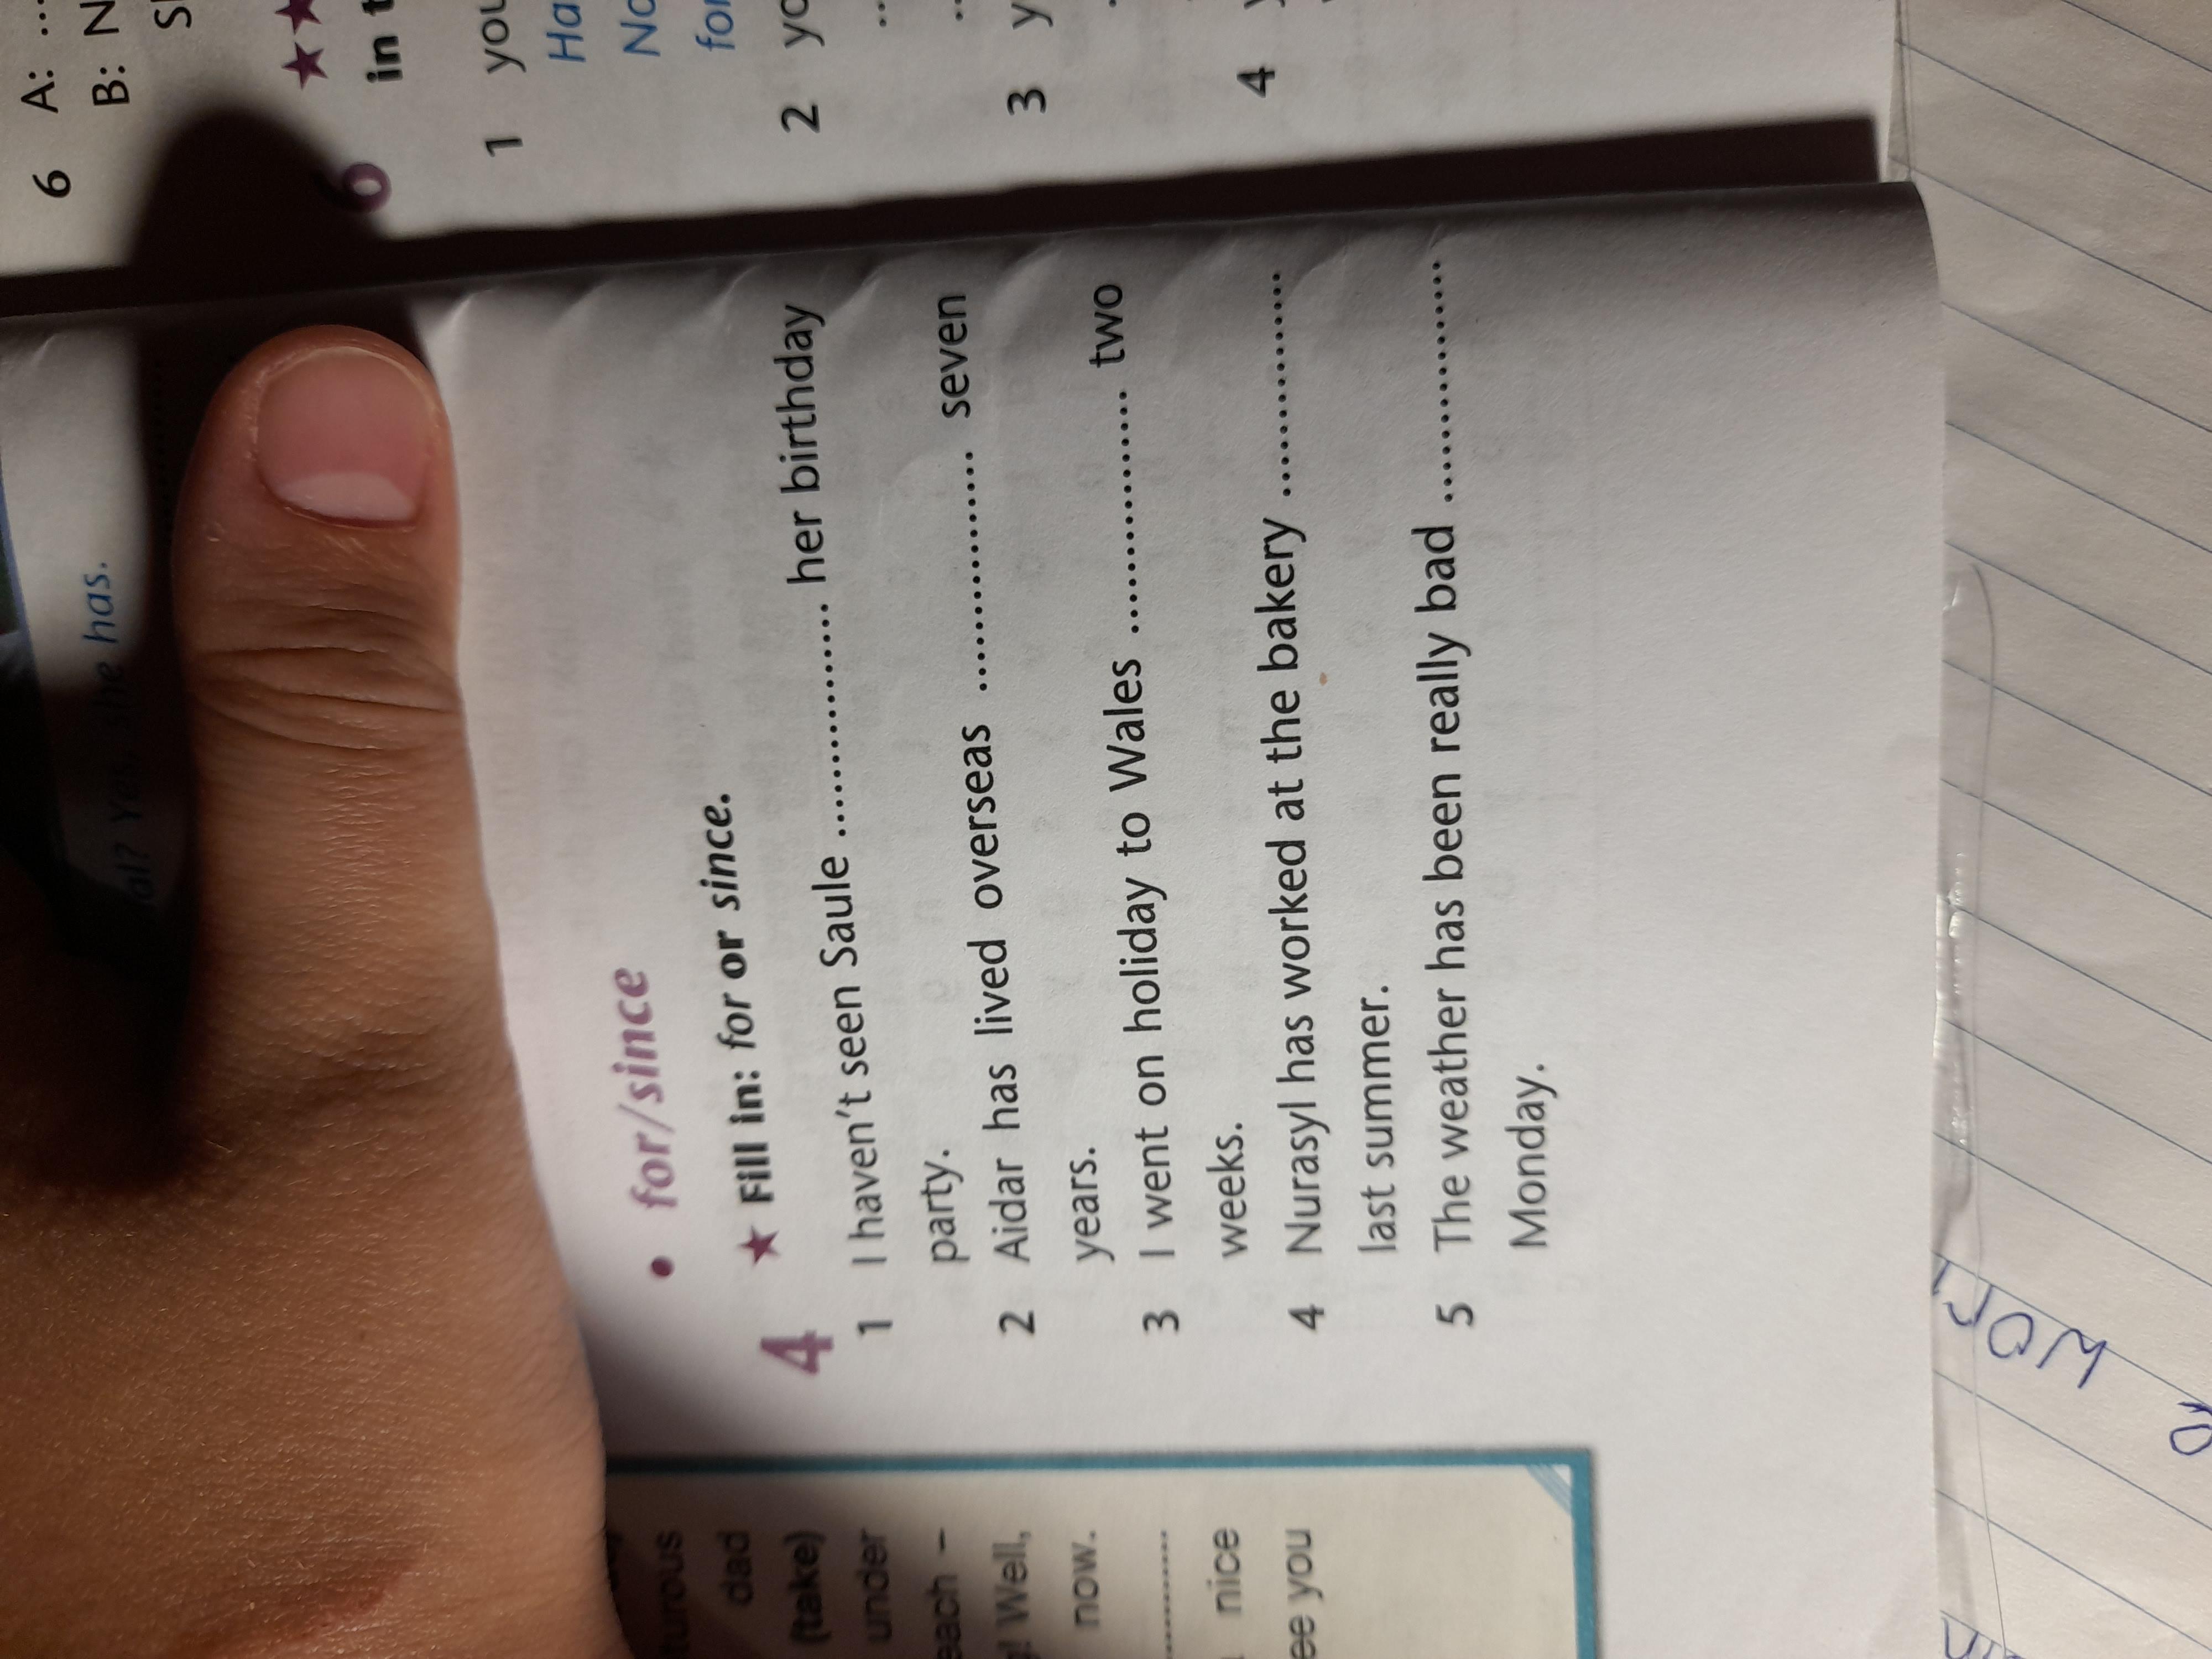 • for/since
4 ★ Fill in: for or since.
1 I haven't seen Saule .................. her birthday
party.
2 Aidar has lived overseas .................. seven
years.
3 I went on holiday to Wales .................. two
weeks.
4 Nurasyl has worked at the bakery ..................
last summer.
5 The weather has been really bad ..................
Monday.
Yes, she has.
dad
(take)
under
! Well,
now.
..........
nice
ee you
6 A: ...
B: N
6 ★★
in t
1 you
Ha
No
for
2 yo
..
3 y
4 y